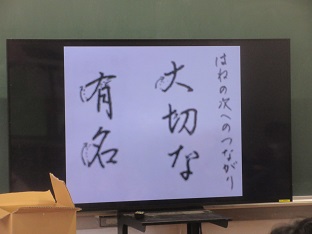 はねの次へのつながり
大切な
有名